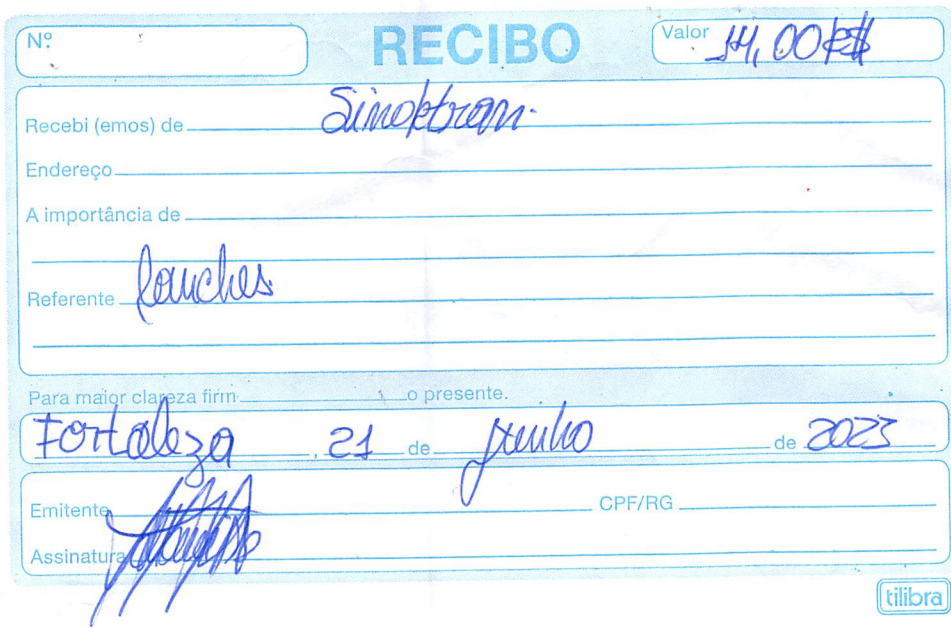 Nº RECIBO Valor 14,00 R$
Recebi (emos) de
Endereço
A importância de
Referente lanches
Para maior clareza firm o presente.
Fortaleza, 21 de junho de 2023
Emitente CPF/RG
Assinatura
tilibra